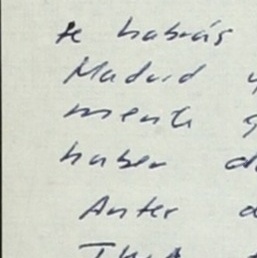 te habrás
Madrid y
mente
haber d
Antes